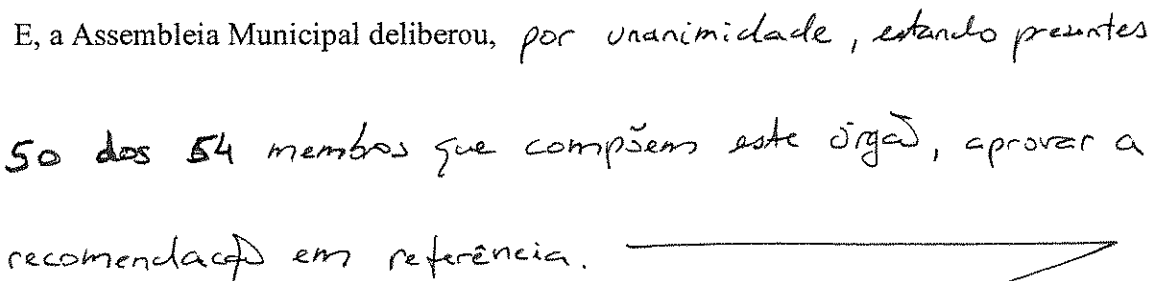 E, a Assembleia Municipal deliberou, por unanimidade, estando presentes
50 dos 54 membros que compõem este órgão, aprovar a
recomendação em referência.